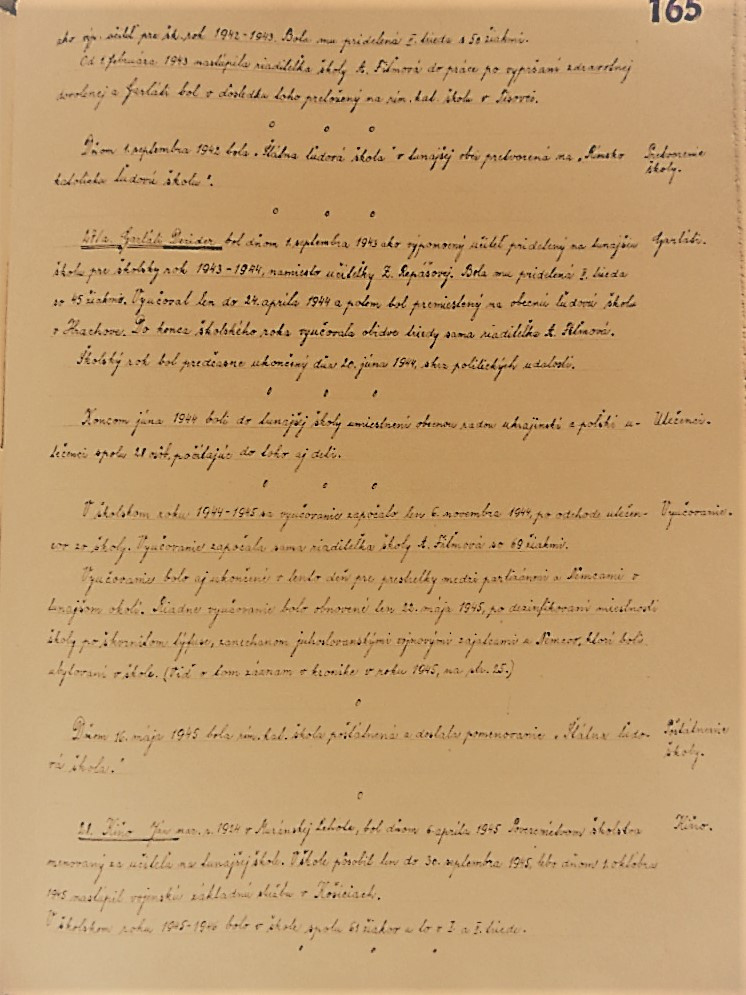 165
ako výp. učiteľ pre šk. rok 1942-1943. Bola mu pridelená I. trieda s 50 žiakmi.
Od 1. februára 1943 nastúpila riaditeľka školy A. Filmová do práce po vypršaní zdravotnej
dovolenej a Garláti bol v dôsledku toho preložený na rím. kat. školu v
Dňom 1. septembra 1942 bola „Štátna ľudová škola" v tunajšej obci pretvorená na „Rímsko Pretvorenie
katolícku ľudovú školu". školy.
Garláti Dezider bol dňom 1. septembra 1943 ako výpomocný učiteľ pridelený na tunajšiu Garláti.
školu pre školský rok 1943-1944, namiesto učiteľky Z. Repášovej. Bola mu pridelená I. trieda
so 45 žiakmi. Vyučoval len do 24. apríla 1944 a potom bol premiestnený na obecnú ľudovú školu
v Hrachove. Do konca školského roka vyučovala obidve triedy sama riaditeľka A. Filmová.
Školský rok bol predčasne ukončený dňa 20. júna 1944, skrz politických udalostí.
Koncom júna 1944 boli do tunajšej školy umiestnení obecnou radou ukrajinskí a poľskí u- Utečenci.
tečenci spolu 28 osôb, počítajúc do toho aj deti.
V školskom roku 1944-1945 sa vyučovanie započalo len 6. novembra 1944, po odchode utečen- Vyučovanie.
cov zo školy. Vyučovanie započala sama riaditeľka školy A. Filmová so 69 žiakmi.
Vyučovanie bolo aj ukončené v tento deň pre prestrelky medzi partizánmi a Nemcami v
tunajšom okolí. Riadne vyučovanie bolo obnovené len 22. mája 1945, po dezinfikovaní miestností
školy po škvrnitom týfuse, zanechanom juhoslovanskými vojnovými zajatcami u Nemcov, ktorí boli
ubytovaní v škole. (Viď o tom záznam v kronike v roku 1945, na str. 25.)
Dňom 16. mája 1945 bola rím. kat. škola poštátnená a dostala pomenovanie „Štátna ľudo- Poštátnenie
vá škola." školy.
28. Kiňo Ján nar. r. 1924 v Muránskej Lehote, bol dňom 6. apríla 1945 Povereníctvom školstva Kiňo.
menovaný za učiteľa na tunajšej škole. V škole pôsobil len do 30. septembra 1945, lebo dňom 1. októbra
1945 nastúpil vojenskú základnú službu v Košiciach.
V školskom roku 1945-1946 bolo v škole spolu 61 žiakov a to v I. a II. triede.